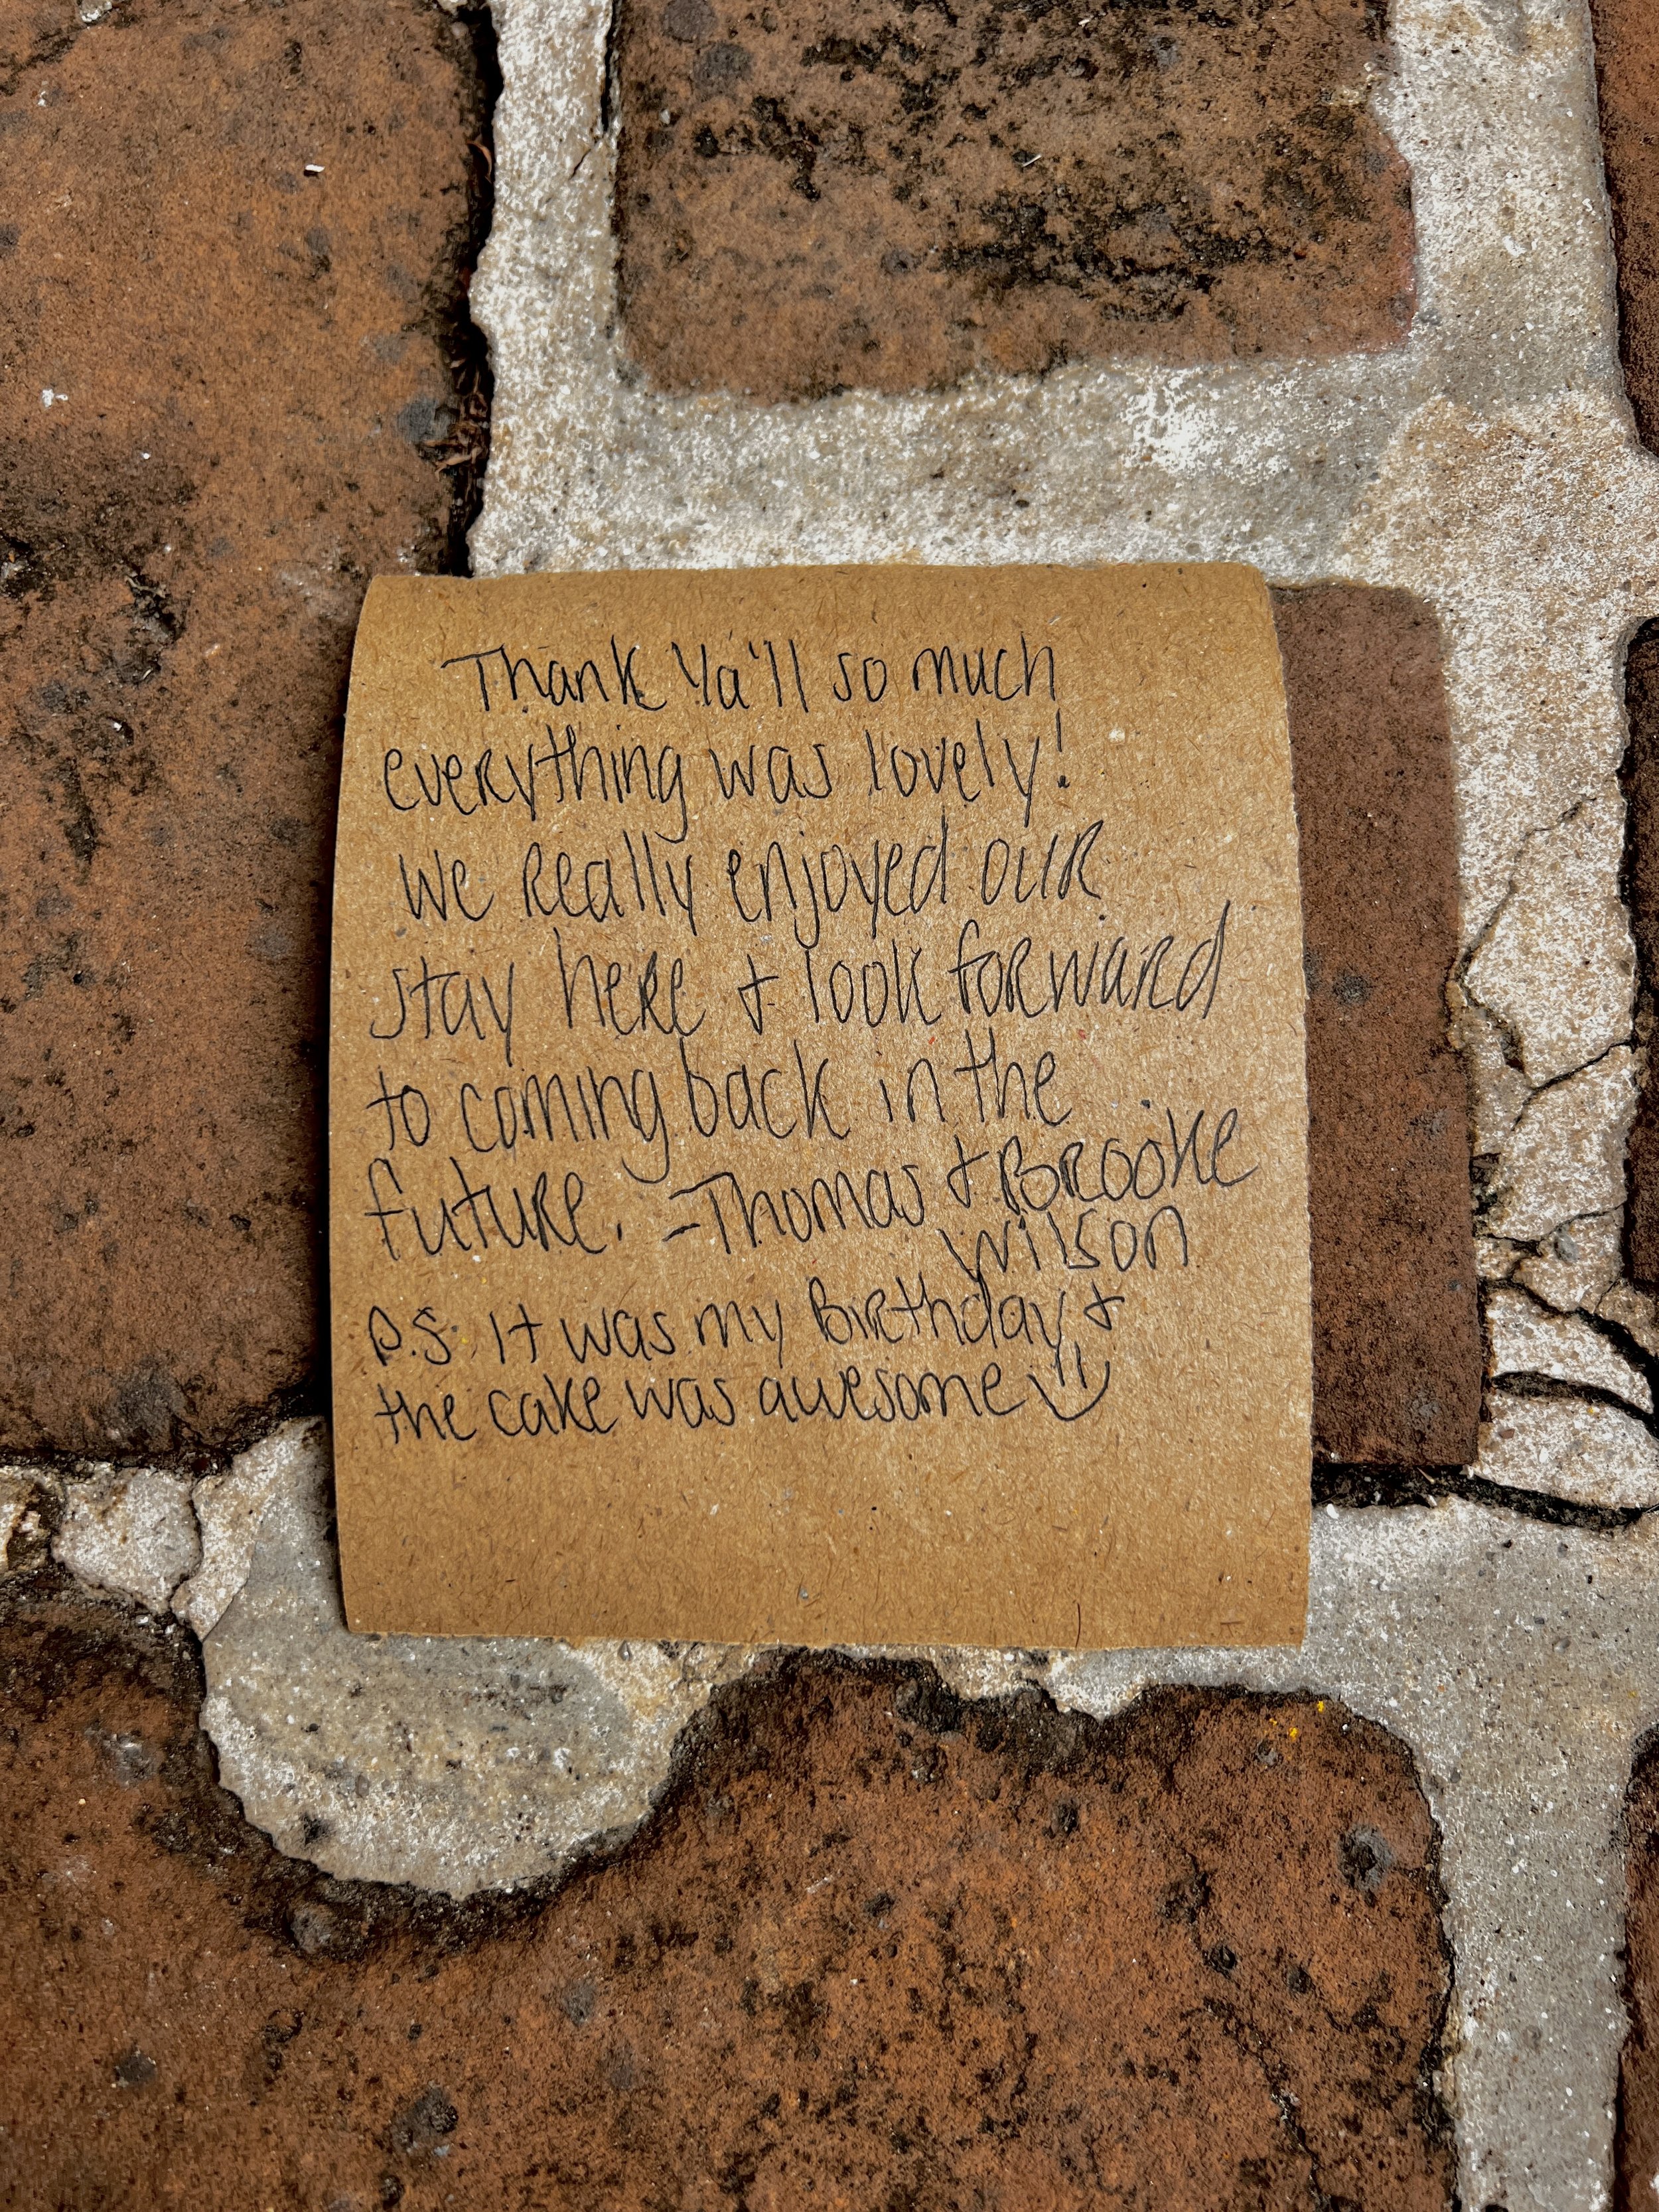 Thank Ya'll so much
everything was lovely!
We Really enjoyed our
stay here + look forward
to coming back in the
future. -Thomas + Brooke
Wilson
P.S. It was my Birthday +
the cake was awesome